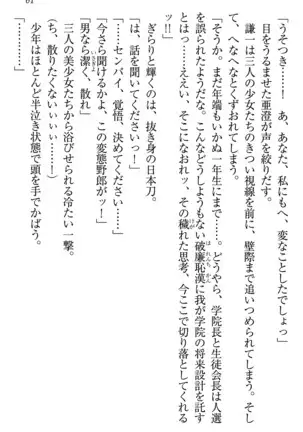 61
「うそつき……！　あ、あなた、私にもへ、へんなことしようとしたでしょっ」
目をうるませた亜澄が声を絞りだす。
謙一は三人の少女たちのきつい視線を前に、壁際まで追いつめられてしまう。そし
て、へなへなとくずおれてしまう。
「そうか。まだ年端もいかぬ一年生にまで……。どうやら、学院長と生徒会長は人選
を誤られたようだな。こんなどうしようもない破廉恥漢に我が学院の将来設計を託す
とは……ええい、そこになおれッ、その穢れた思考、今ここで切り落としてくれる
ッ!!」
ぎらりと輝くのは、抜き身の日本刀。
「は、話を聞いてくださいっ！」
「……センパイ、覚悟、決めてください……っ」
「今さら聞けるかよ、この変態野郎がッ！」
「男なら潔く、散れ」
三人の美少女たちから浴びせられる冷たい一撃。
（ち、散りたくないぃぃぃ……っ!!）
少年はほとんど半泣き状態で頭を手でかばう。